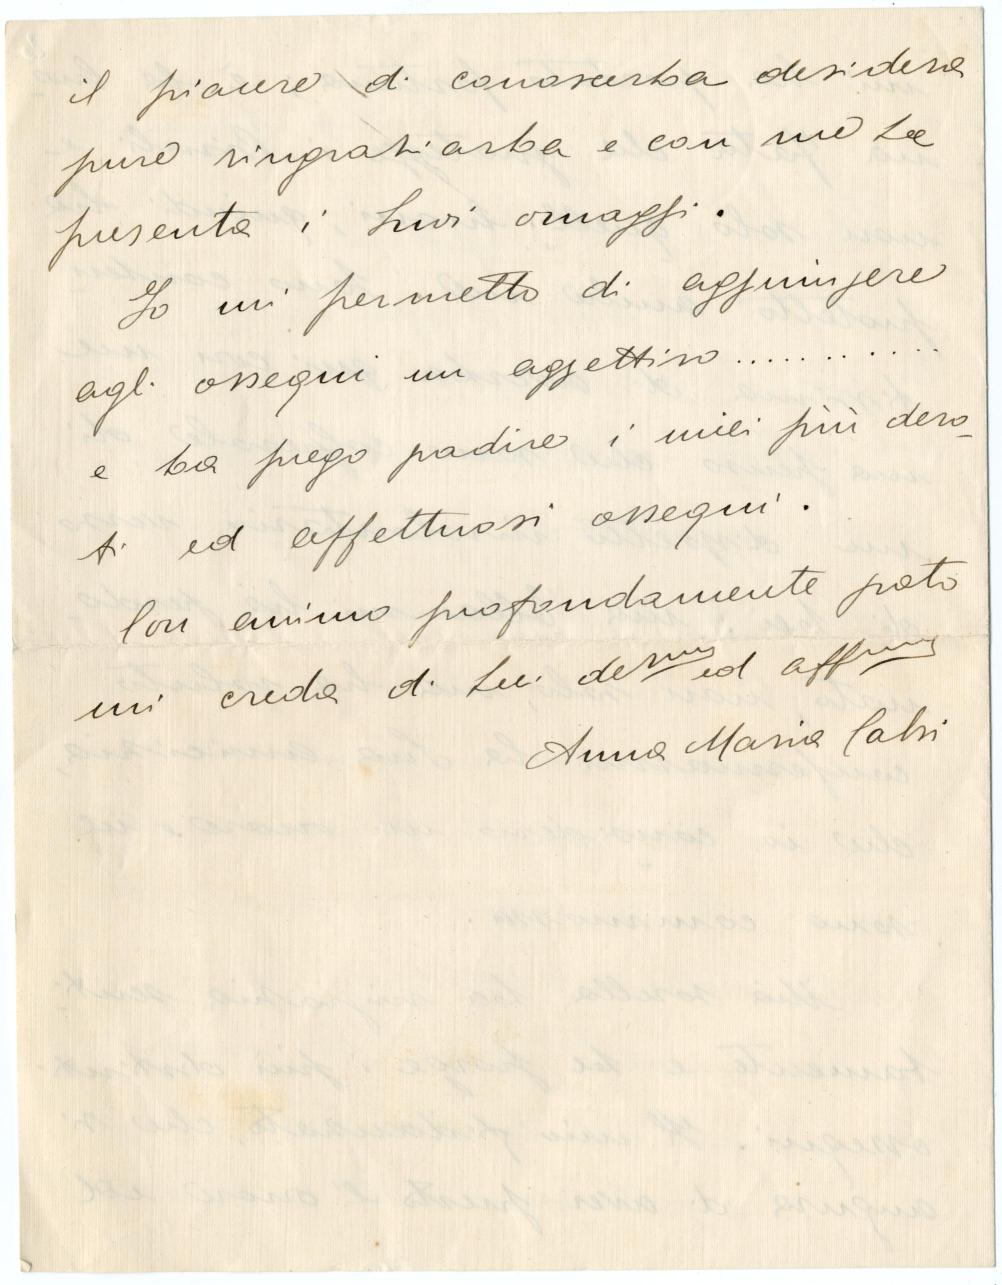 il piacere di conoscerLa desidera
pure ringraziarLa e con me Le
presenta i Suoi omaggi.
Io mi permetto di aggiungere
agli ossequi un aggettivo...........
e La prego gradire i miei più devo-
ti ed affettuosi ossequi.
Con animo profondamente grato
mi creda di Lei dev.ma ed aff.ma
Anna Maria Calvi